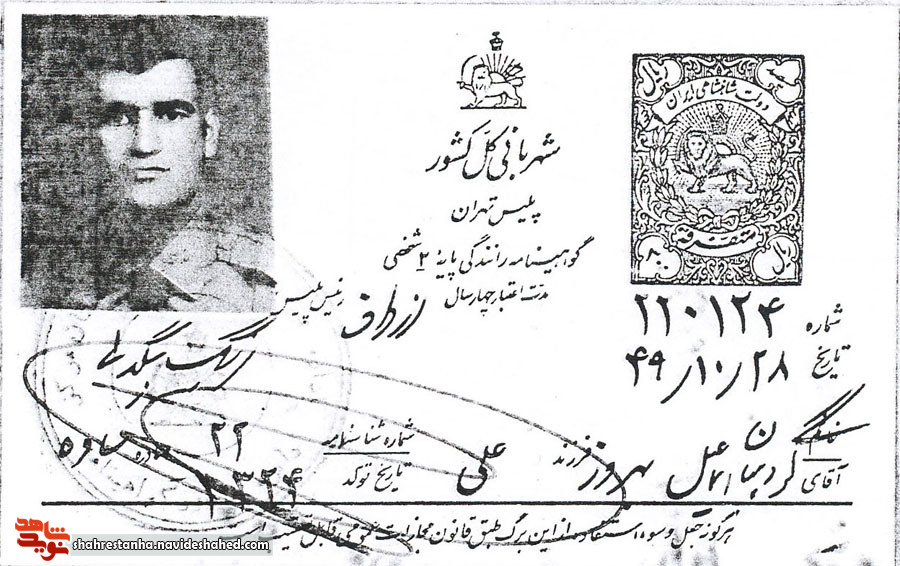 دولت شاهنشاهی ایران
متفرقه
ریال
شهربانی کل کشور
پلیس تهران
گواهینامه رانندگی پایهٔ ۲ شخصی
مدت اعتبار چهار سال
رئیس پلیس
از طرف
شماره ۲۲۰۱۲۴
تاریخ ۴۹/۱۰/۲۸
آقای گردبیان اسماعیل بهروز فرزند علی
شماره شناسنامه ۲۲ صادره ساوه
تاریخ تولد ۱۳۲۴
هرگونه جعل و سوء استفاده از این برگ طبق قانون مجازات عمومی قابل تعقیب است
نوید شاهد
shahrestanha.navideshahed.com